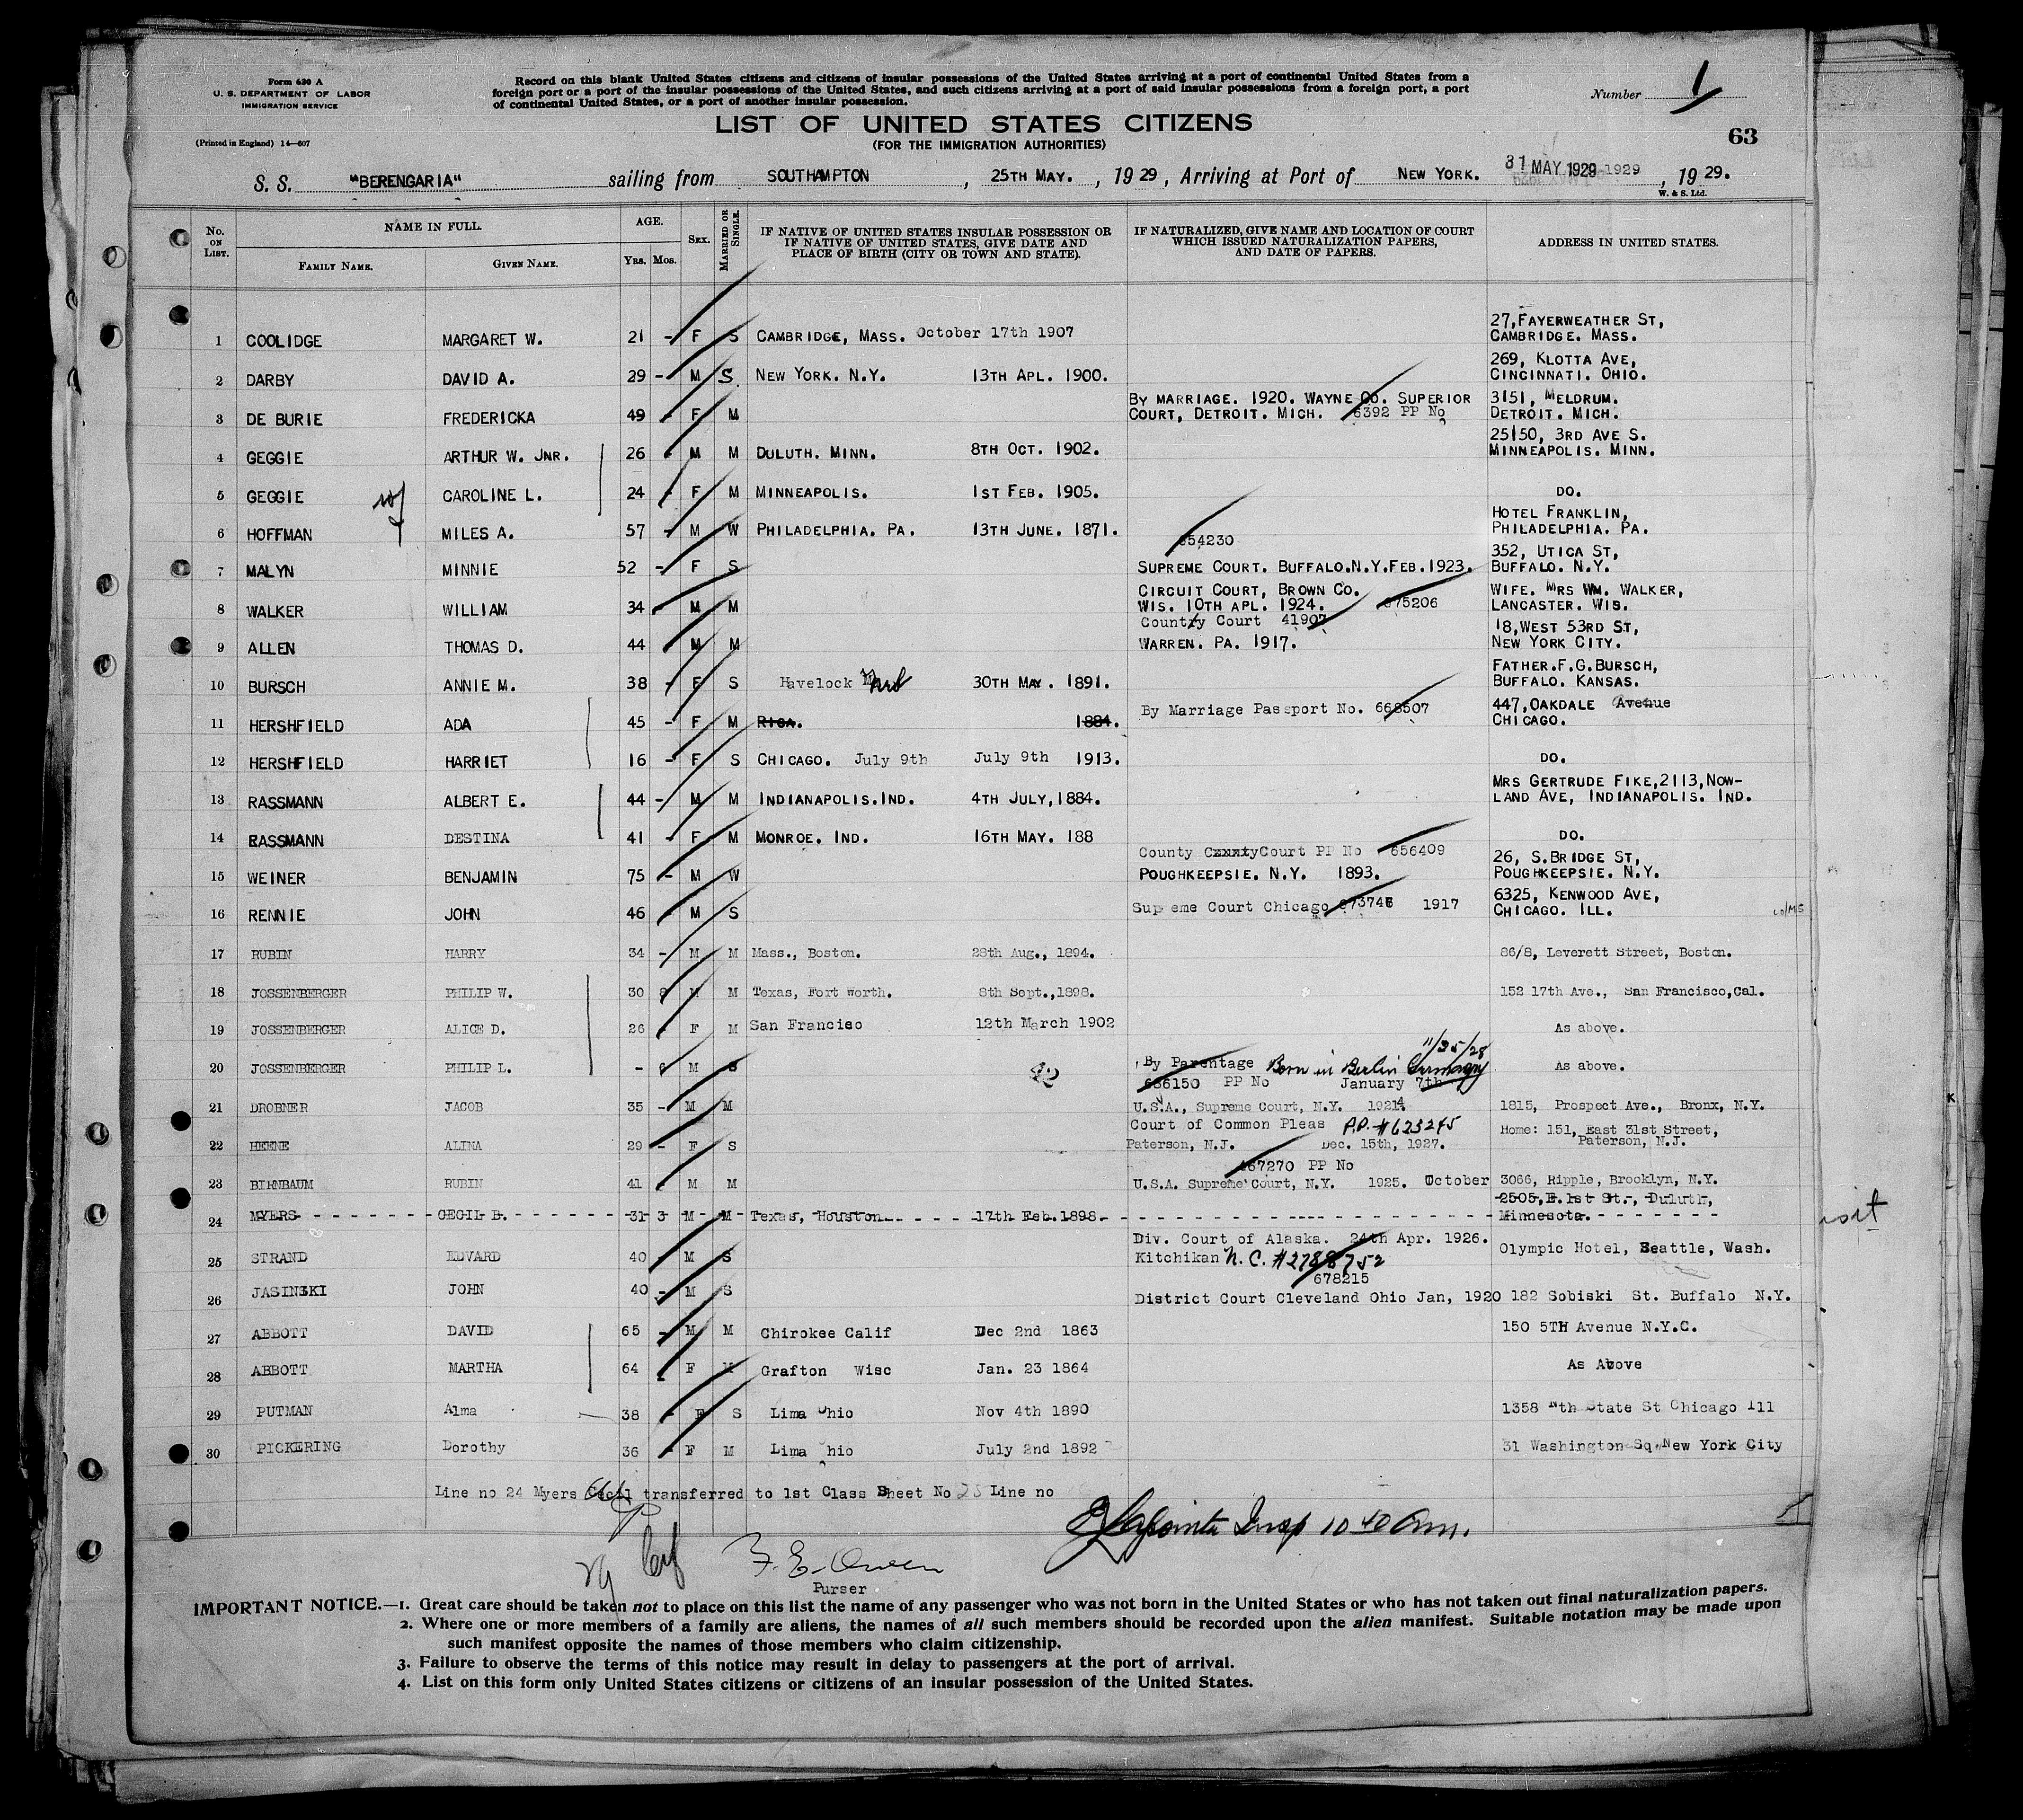 Form 630 A
U. S. DEPARTMENT OF LABOR
IMMIGRATION SERVICE
(Printed in England) 14—607
Record on this blank United States citizens and citizens of insular possessions of the United States arriving at a port of continental United States from a
foreign port or a port of the insular possessions of the United States, and such citizens arriving at a port of said insular possessions from a foreign port, a port
of continental United States, or a port of another insular possession.
Number 1
LIST OF UNITED STATES CITIZENS
(FOR THE IMMIGRATION AUTHORITIES)
63
S. S. "BERENGARIA" sailing from SOUTHAMPTON, 25TH MAY., 19 29, Arriving at Port of NEW YORK. 31 MAY 1929 1929, 19 29.
W. & S. Ltd.
No. ON LIST. NAME IN FULL. FAMILY NAME. GIVEN NAME. AGE. YRS. MOS. SEX. MARRIED OR SINGLE. IF NATIVE OF UNITED STATES INSULAR POSSESSION OR IF NATIVE OF UNITED STATES, GIVE DATE AND PLACE OF BIRTH (CITY OR TOWN AND STATE). IF NATURALIZED, GIVE NAME AND LOCATION OF COURT WHICH ISSUED NATURALIZATION PAPERS, AND DATE OF PAPERS. ADDRESS IN UNITED STATES.
1 COOLIDGE MARGARET W. 21 - F S CAMBRIDGE, MASS. October 17th 1907 27, FAYERWEATHER ST, CAMBRIDGE. MASS.
2 DARBY DAVID A. 29 - M S NEW YORK. N.Y. 13TH APL. 1900. 269, KLOTTA AVE, CINCINNATI. OHIO.
3 DE BURIE FREDERICKA 49 - F M BY MARRIAGE. 1920. WAYNE CO. SUPERIOR COURT, DETROIT. MICH. 6392 PP No 3151, MELDRUM. DETROIT. MICH.
4 GEGGIE ARTHUR W. JNR. 26 - M M DULUTH. MINN. 8TH OCT. 1902. 25150, 3RD AVE S. MINNEAPOLIS. MINN.
5 GEGGIE CAROLINE L. 24 - F M MINNEAPOLIS. 1ST FEB. 1905. DO.
6 HOFFMAN MILES A. 57 - M W PHILADELPHIA. PA. 13TH JUNE. 1871. HOTEL FRANKLIN, PHILADELPHIA. PA.
7 MALYN MINNIE 52 - F S 654230 SUPREME COURT. BUFFALO.N.Y.FEB.1923. 352, UTICA ST, BUFFALO. N.Y.
8 WALKER WILLIAM 34 - M M CIRCUIT COURT, BROWN CO. WIS. 10TH APL. 1924. 675206 WIFE. MRS WM. WALKER, LANCASTER. WIS.
9 ALLEN THOMAS D. 44 - M M County Court 41907 WARREN. PA. 1917. 18, WEST 53RD ST, NEW YORK CITY.
10 BURSCH ANNIE M. 38 - F S Havelock 30TH MAY. 1891. FATHER.F.G.BURSCH, BUFFALO. KANSAS.
11 HERSHFIELD ADA 45 - F M RIGA. 1884. By Marriage Passport No. 668507 447, OAKDALE Avenue CHICAGO.
12 HERSHFIELD HARRIET 16 - F S CHICAGO. July 9th July 9th 1913. DO.
13 RASSMANN ALBERT E. 44 - M M INDIANAPOLIS.IND. 4TH JULY, 1884. MRS GERTRUDE FIKE, 2113, NOW-LAND AVE, INDIANAPOLIS. IND.
14 RASSMANN DESTINA 41 - F M MONROE. IND. 16TH MAY. 188 DO.
15 WEINER BENJAMIN 75 - M W County CxxxtyCourt PP No 656409 POUGHKEEPSIE. N.Y. 1893. 26, S.BRIDGE ST, POUGHKEEPSIE. N.Y.
16 RENNIE JOHN 46 - M S Sup eme Court Chicago 1917 6325, KENWOOD AVE, CHICAGO. ILL.
17 RUBIN HARRY 34 - M M Mass., Boston. 28th Aug., 1894. 86/8, Leverett Street, Boston.
18 JOSSENBERGER PHILIP W. 30 8 M M Texas, Fort Worth. 8th Sept.,1898. 152 17th Ave., San Francisco,Cal.
19 JOSSENBERGER ALICE D. 26 - F M San Francisco 12th March 1902 As above.
20 JOSSENBERGER PHILIP L. - 6 M S By Parentage Born in Berlin Germany 11/25/28 As above.
21 DROBNER JACOB 35 - M M 636150 PP No January 7th U.S.A., Supreme Court, N.Y. 1924. 1815, Prospect Ave., Bronx, N.Y.
22 HEENE ALINA 29 - F S Court of Common Pleas P.P. #623245 Paterson, N.J. Dec. 15th, 1927. Home: 151, East 31st Street, Paterson, N.J.
23 BIRNBAUM RUBIN 41 - M M 467270 PP No U.S.A. Supreme Court, N.Y. 1925. October 3066, Ripple, Brooklyn, N.Y.
24 MYERS CECIL B. 31 3 M M Texas, Houston 17th Feb.1898. 2505, E.1st St., Duluth, Minnesota.
25 STRAND EDVARD 40 M S Div. Court of Alaska. 24th Apr. 1926. Kitchikan N.C. #2788752 Olympic Hotel, Seattle, Wash.
26 JASINSKI JOHN 40 - M S 678215 District Court Cleveland Ohio Jan, 1920 182 Sobiski St. Buffalo N.Y.
27 ABBOTT DAVID 65 - M M Chirokee Calif Dec 2nd 1863 150 5TH Avenue N.Y.C.
28 ABBOTT MARTHA 64 F M Grafton Wisc Jan. 23 1864 As Above
29 PUTMAN Alma 38 - F S Lima Ohio Nov 4th 1890 1358 Nth State St Chicago Ill
30 PICKERING Dorothy 36 - F M Lima hio July 2nd 1892 31 Washington Sq. New York City
Line no 24 Myers Cecil transferred to 1st Class Sheet No 23 Line no
Insp 10 40 am.
F. E. Owen
Purser
IMPORTANT NOTICE.—1. Great care should be taken not to place on this list the name of any passenger who was not born in the United States or who has not taken out final naturalization papers.
2. Where one or more members of a family are aliens, the names of all such members should be recorded upon the alien manifest. Suitable notation may be made upon
such manifest opposite the names of those members who claim citizenship.
3. Failure to observe the terms of this notice may result in delay to passengers at the port of arrival.
4. List on this form only United States citizens or citizens of an insular possession of the United States.